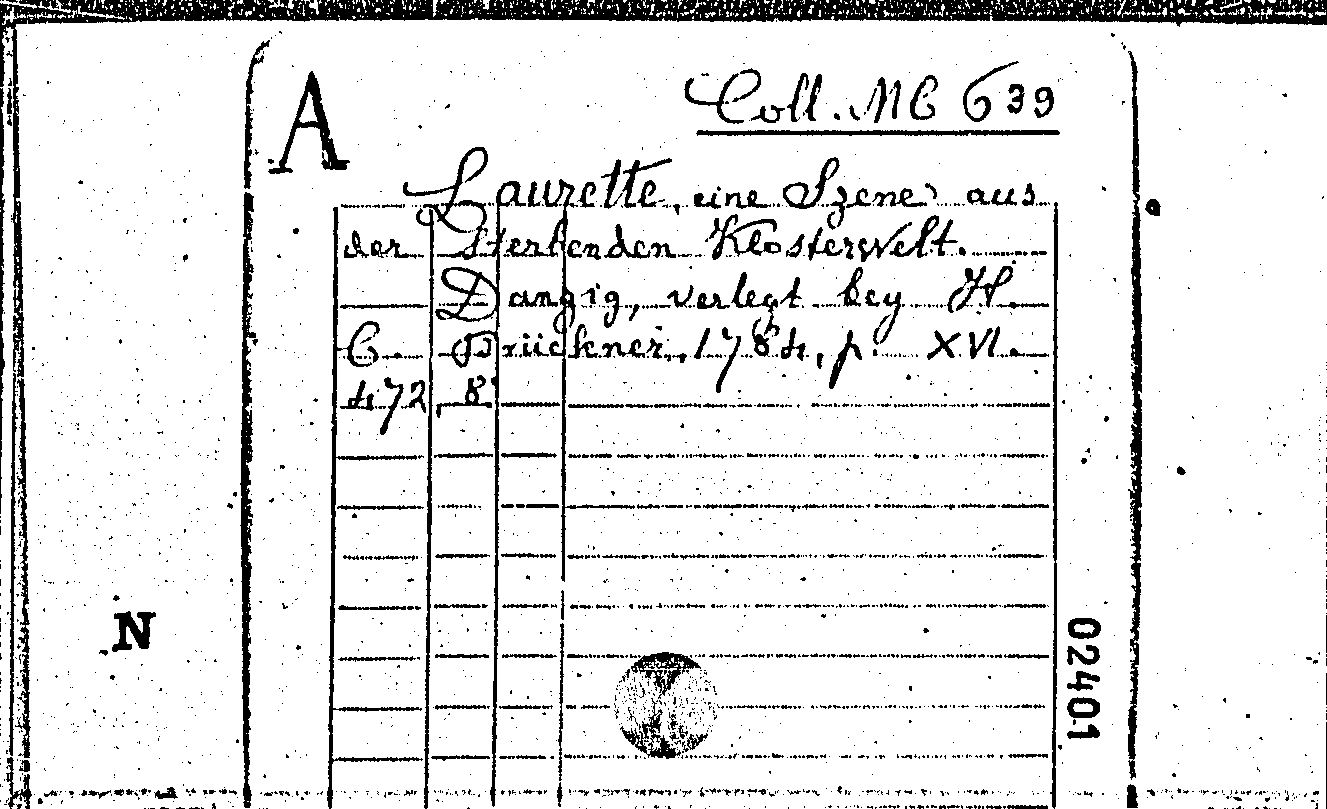 A
Coll. MC 639
Laurette, eine Szene aus
der sterbenden Klosterwelt.
Danzig, verlegt bey H.
C. Brückner, 1784, p. XVI.
472, 8°
N
02401